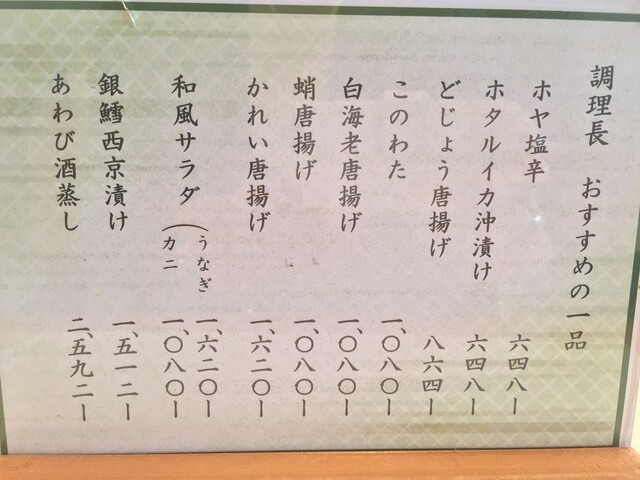 調理長 おすすめの一品
ホヤ塩辛 六四八ー
ホタルイカ沖漬け 六四八ー
どじょう唐揚げ 八六四ー
このわた 一、〇八〇ー
白海老唐揚げ 一、〇八〇ー
蛸唐揚げ 一、〇八〇ー
かれい唐揚げ 一、六二〇ー
和風サラダ（うなぎ 一、六二〇ー
カニ 一、〇八〇ー
銀鱈西京漬け 一、五一二ー
あわび酒蒸し 二、五九二ー